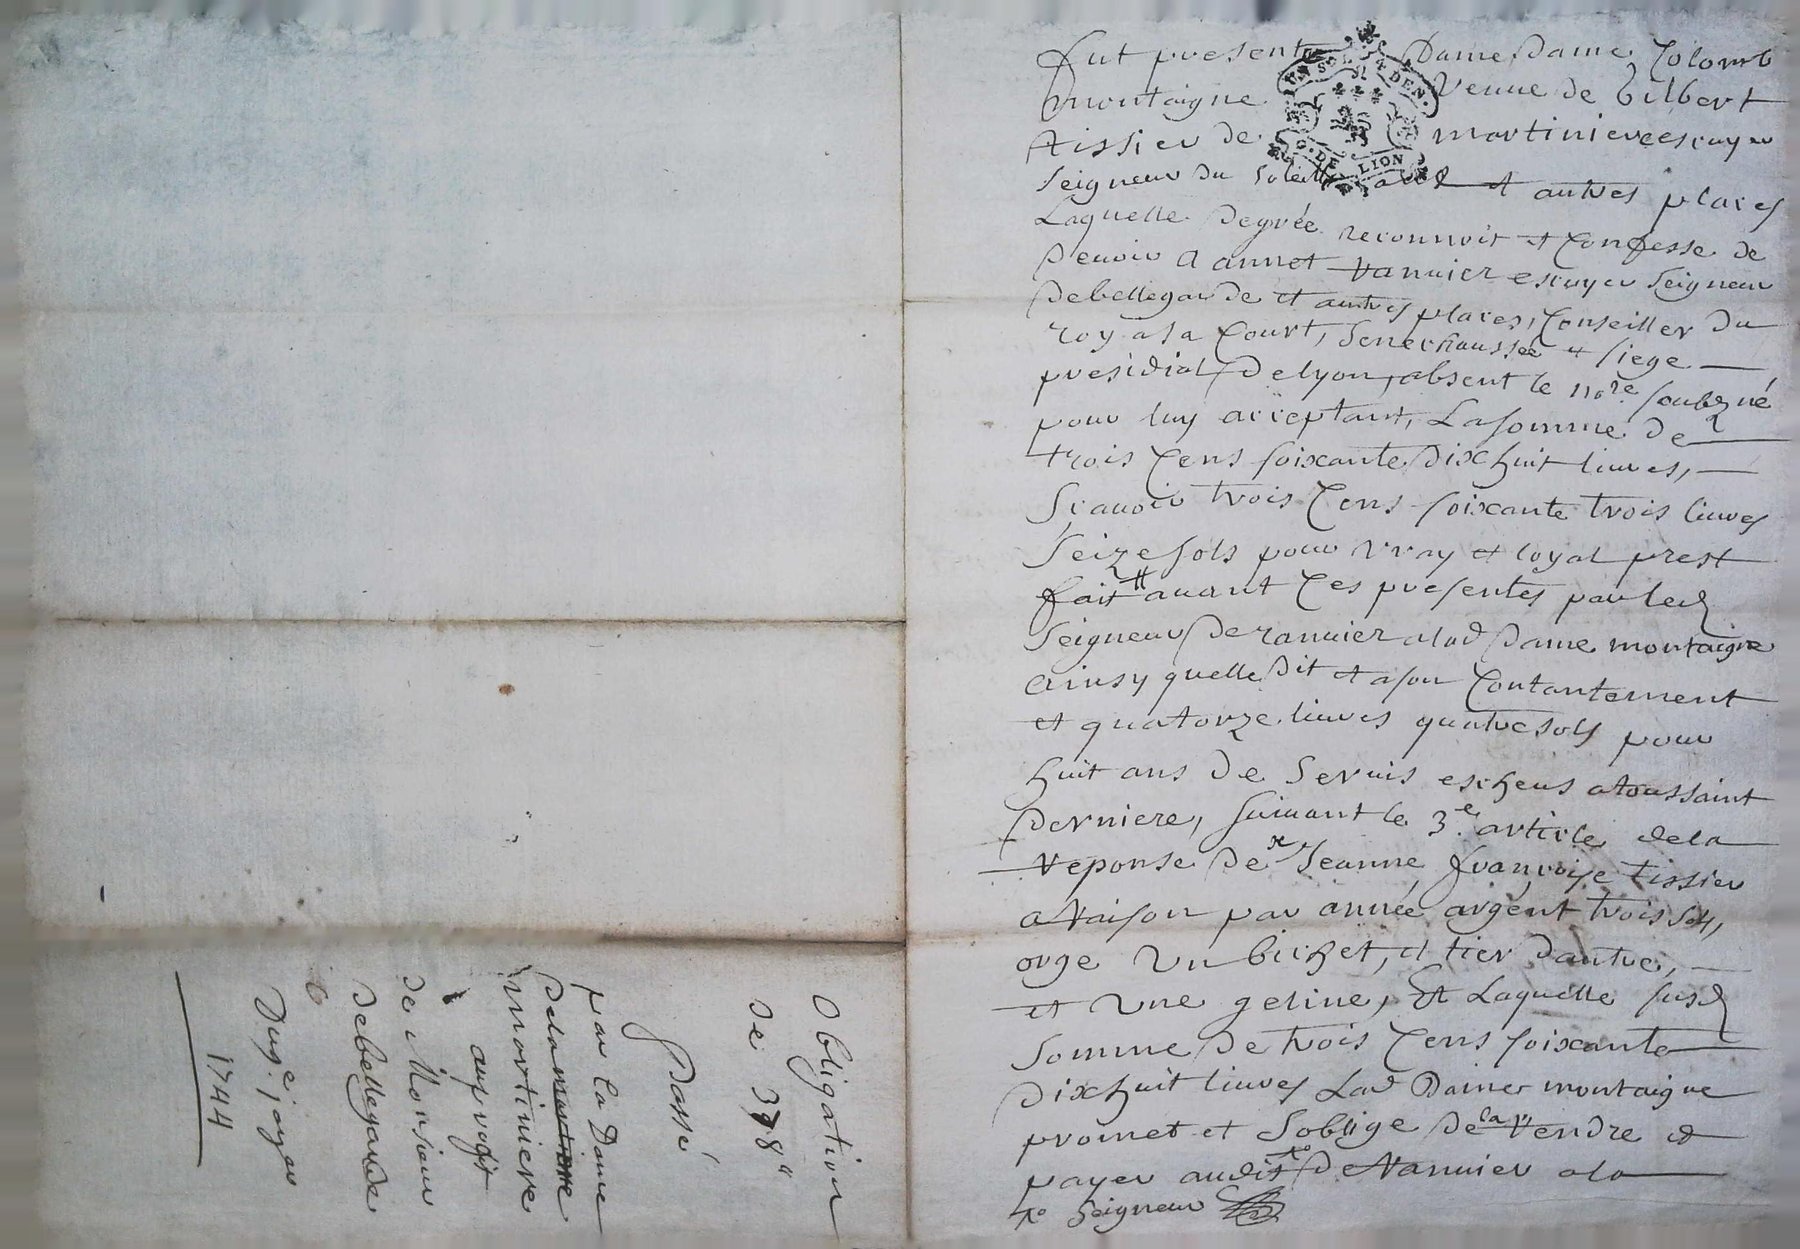 fut presente Dame Dame Colomb
montaigne Veuue de Gilbert
tissier de martiniere escuyer
UN SOL 4 DEN.
G. DE LION
seigneur du Soleillant et autres places
Laquelle degrée reconnoit et Confesse de
deuoir a annet rannier escuyer seigneur
debellegarde et autres places, Conseiller du
roy a la Court, Senechaussée et siege
presidial de lyon, absent le nore. soubzné
pour luy acceptant, La somme de
trois Cens soixante dixhuit liures,
Sçauoir trois Cens soixante trois liures
seize sols pour vray et loyal prest
fait avant Ces presentes par led
seigneur de rannier alad Dame montaigne
ainsy quelle dit et a son Contantement
et quatorze liures quatre sols pour
huit ans de seruis escheus atoussaint
derniere, suiuant le 3e. article dela
reponse de x Jeanne françoise tissier
a raison par année argent trois sols,
orge un bichet, et tier dautre,
et une geline, Et Laquelle susd
somme de trois Cens soixante
dixhuit liures Lad Dame montaigne
promet et soblige de la rendre et
payer audit xo de rannier a la
xo seigneur
Obligation
de 378 ll
Passé
par la Dame
dela martiniere
martiniere
au profit
de Monsieur
debellegarde
6
Du 9e januier
1744